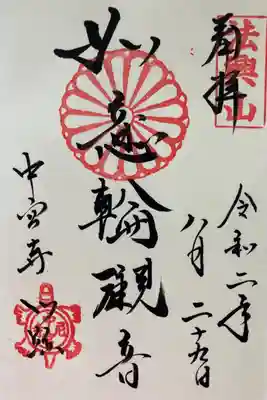 法興山
奉拝
令和二年
八月二十九日
如意輪観音
中宮寺